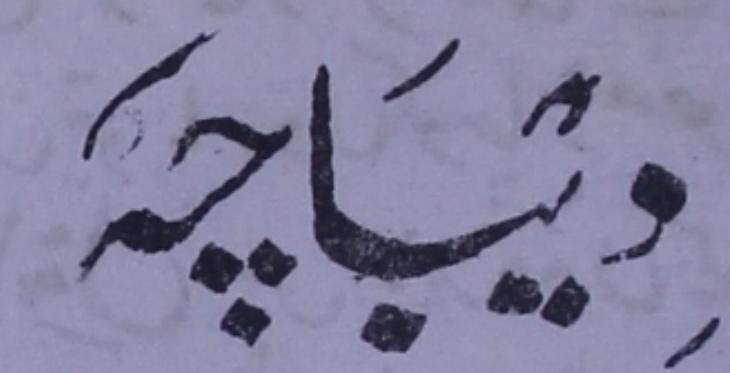 دِیْبَاچَہ